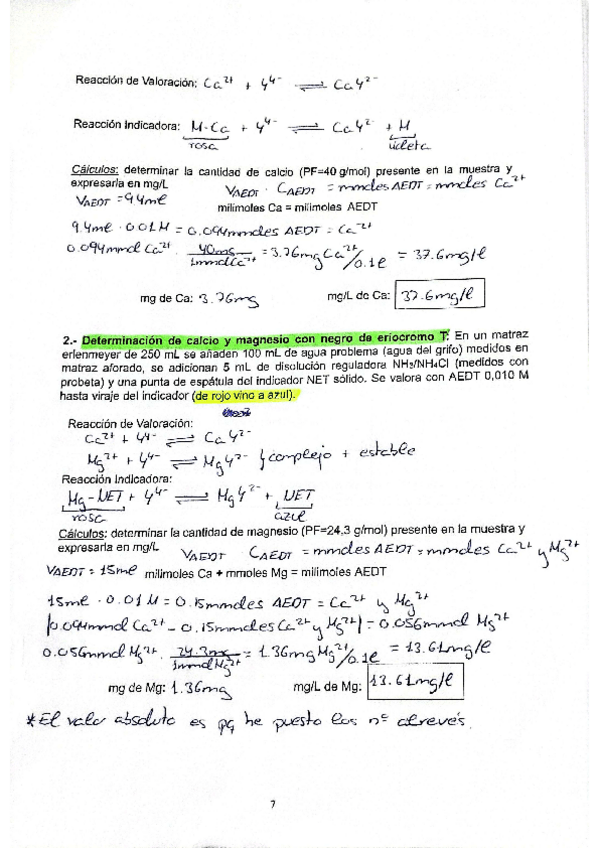 Reacción de Valoración: Ca²⁺ + Y⁴⁻ ⇌ CaY²⁻
Reacción Indicadora: M-Ca + Y⁴⁻ ⇌ CaY²⁻ + M
rosa violeta
Cálculos: determinar la cantidad de calcio (PF=40 g/mol) presente en la muestra y
expresarla en mg/L V_AEDT · C_AEDT = mmoles AEDT = mmoles Ca²⁺
V_AEDT = 9.4ml milimoles Ca = milimoles AEDT
9.4ml · 0.01M = 0.094mmoles AEDT = Ca²⁺
0.094mmol Ca²⁺ · 40mg/1mmolCa²⁺ = 3.76mg Ca²⁺/0.1l = 37.6mg/l
mg de Ca: 3.76mg mg/L de Ca: 37.6mg/l
2.- Determinación de calcio y magnesio con negro de eriocromo T. En un matraz
erlenmeyer de 250 mL se añaden 100 mL de agua problema (agua del grifo) medidos en
matraz aforado, se adicionan 5 mL de disolución reguladora NH₃/NH₄Cl (medidos con
probeta) y una punta de espátula del indicador NET sólido. Se valora con AEDT 0,010 M
hasta viraje del indicador (de rojo vino a azul).
Reacción de Valoración:
Ca²⁺ + Y⁴⁻ ⇌ CaY²⁻
Mg²⁺ + Y⁴⁻ ⇌ MgY²⁻ } complejo + estable
Reacción Indicadora:
Mg-NET + Y⁴⁻ ⇌ MgY²⁻ + NET
rosa azul
Cálculos: determinar la cantidad de magnesio (PF=24,3 g/mol) presente en la muestra y
expresarla en mg/L V_AEDT · C_AEDT = mmoles AEDT = mmoles Ca²⁺ y Mg²⁺
V_AEDT = 15ml milimoles Ca + mmoles Mg = milimoles AEDT
15ml · 0.01M = 0.15mmoles AEDT = Ca²⁺ y Mg²⁺
|0.094mmol Ca²⁺ - 0.15mmoles Ca²⁺ y Mg²⁺| = 0.056mmol Mg²⁺
0.056mmol Mg²⁺ · 24.3mg/1mmol Mg²⁺ = 1.36mg Mg²⁺/0.1l = 13.61mg/l
mg de Mg: 1.36mg mg/L de Mg: 13.61mg/l
*El valo absoluto es pq he puesto los nº alrevés.
7